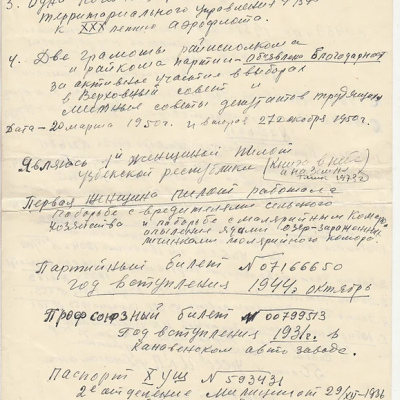 3. Одна
территориального управления
к XXX летию аэрофлота.
4. Две грамоты райисполкома
и райкома партии - объявлена благодарность
за активное участие в выборах
в Верховный совет и
местные советы депутатов трудящихся
Дата - 20 марта 1950г. и вторая 27 декабря 1950г.
Являлась 1й женщиной пилот
Узбекской республики (Книга в небе
и на земле
1973г
Первая женщина пилот работала
по борьбе с вредителями сельского
хозяйства и по борьбе с малярийным комаром
опыление ядами озер - зараженных
личинками малярийного комара.
Партийный билет №07166650
год вступления 1944г октябрь
Профсоюзный билет №00799513
Год вступления 1931г. в
автозаводе.
Паспорт X УШ №593431
2е отделение милиции от 29/XII-1936